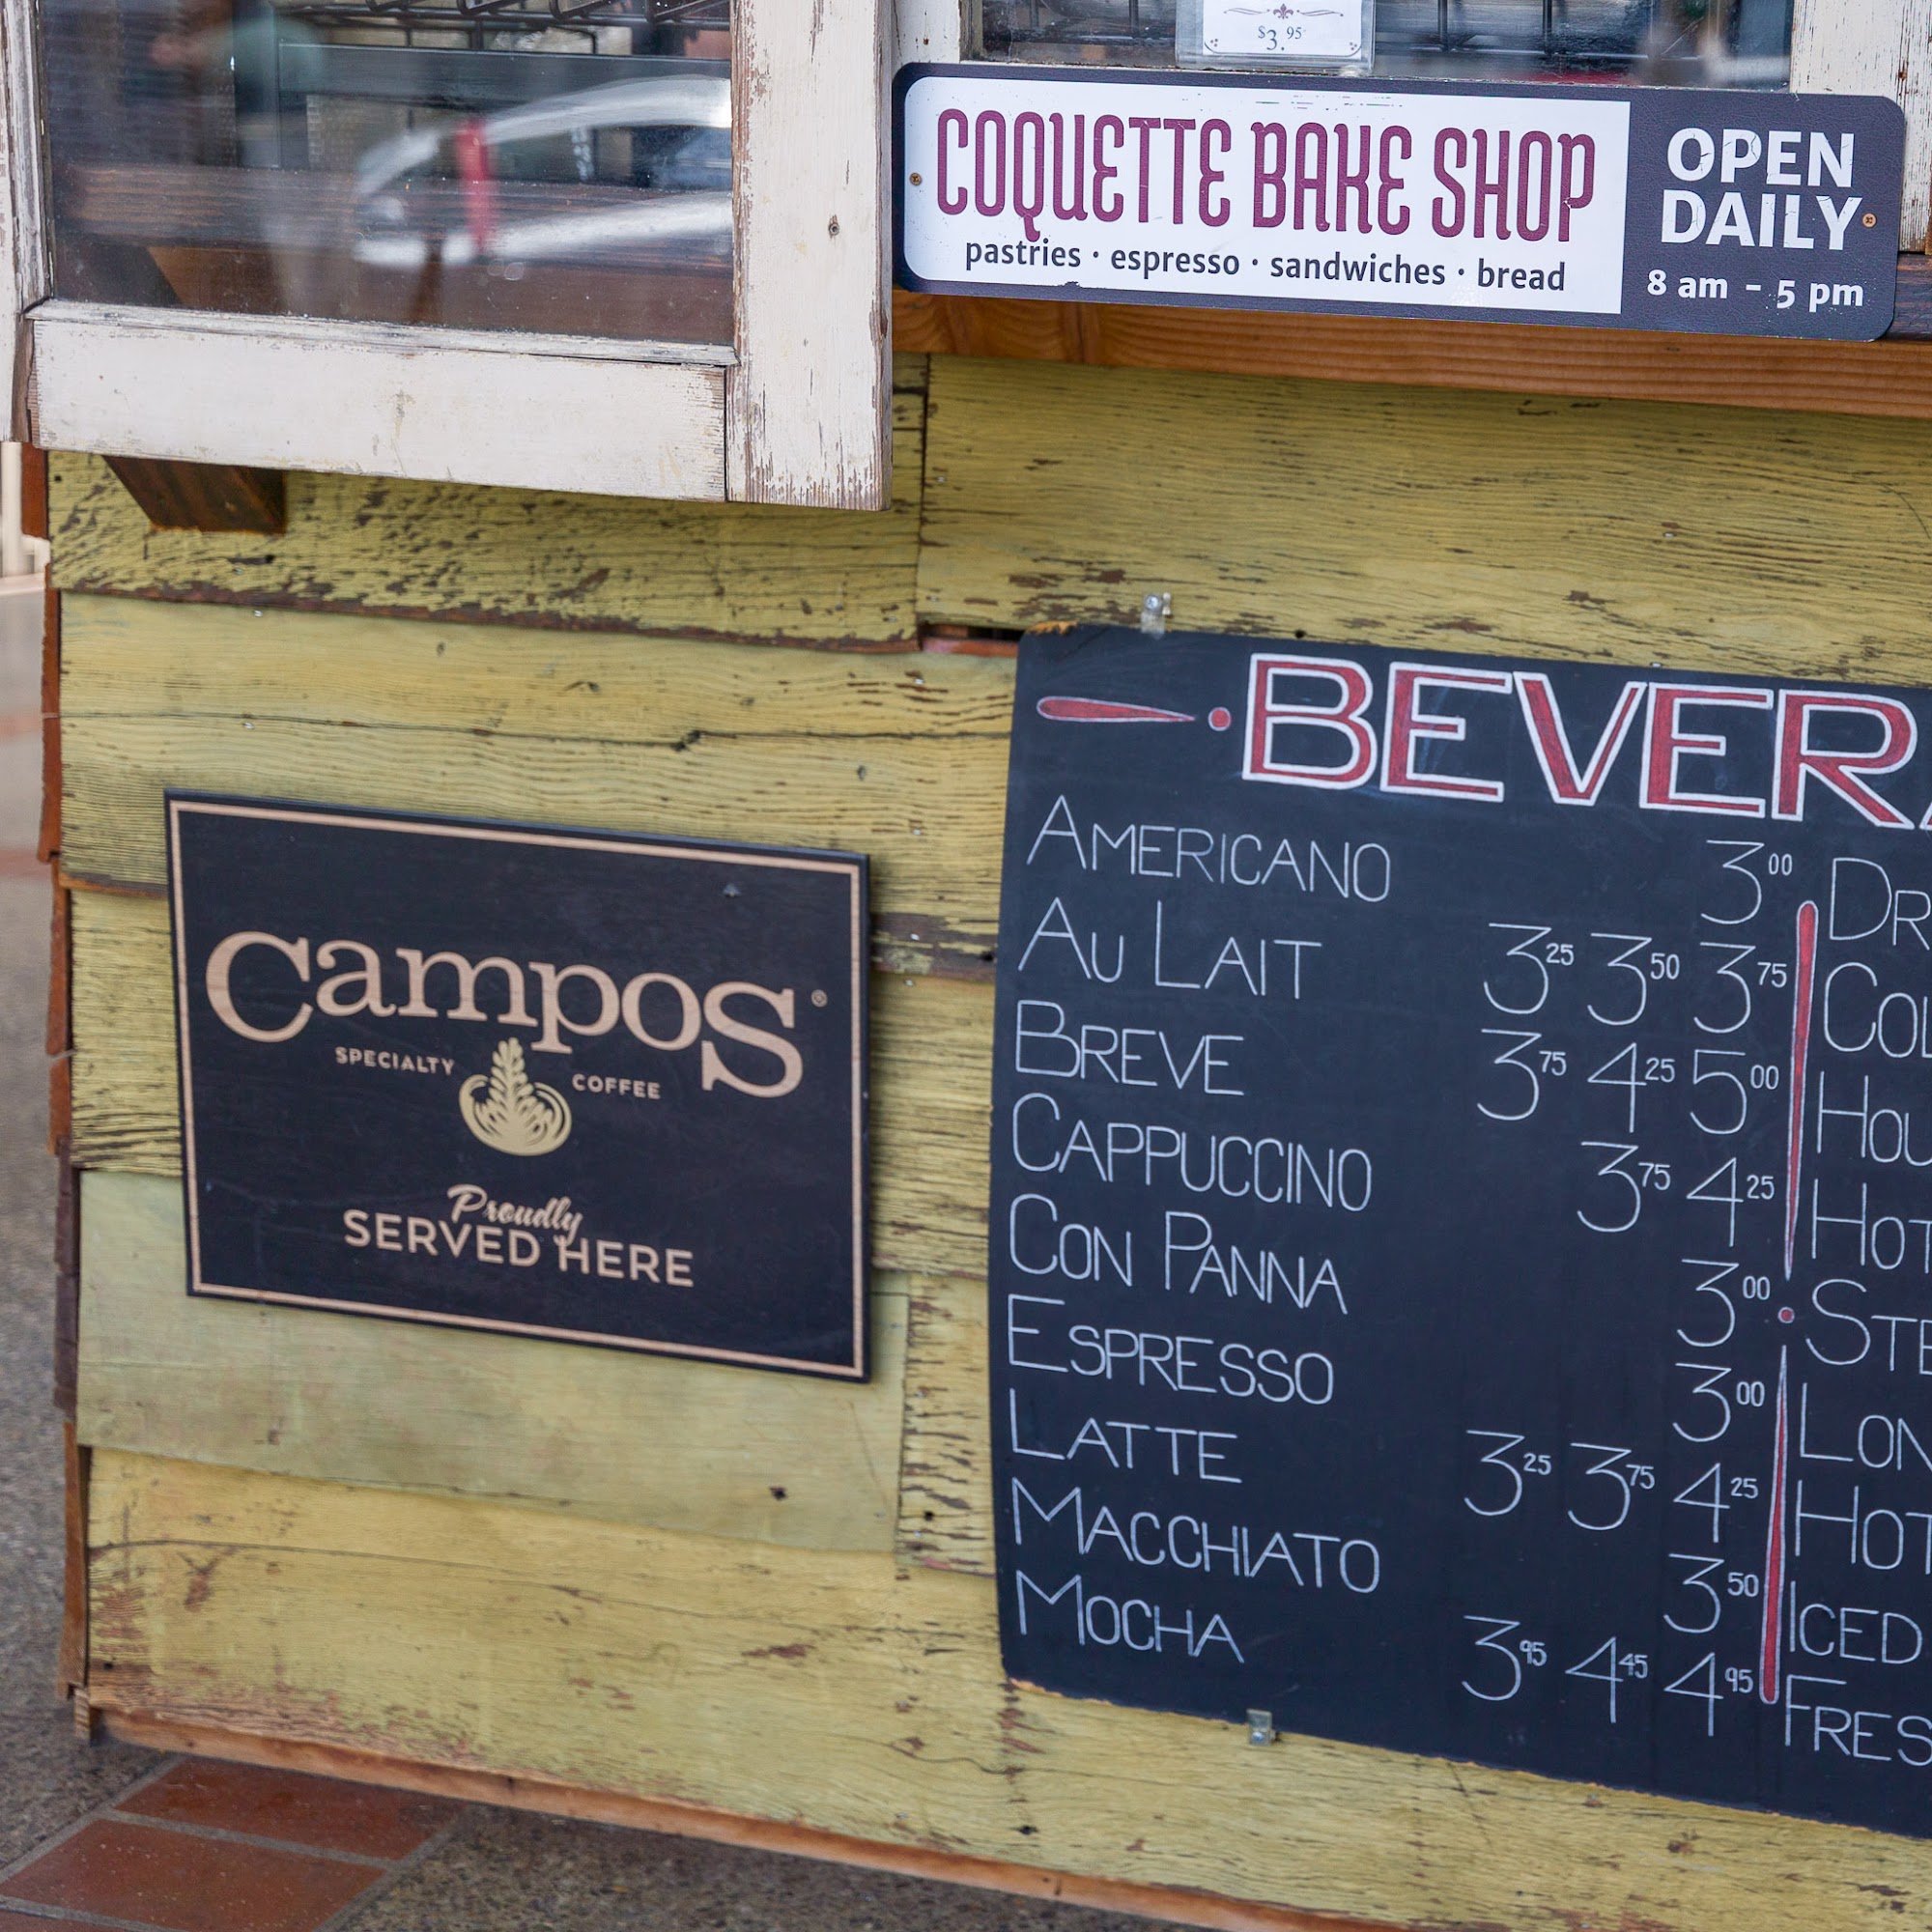 $3.95
COQUETTE BAKE SHOP
pastries · espresso · sandwiches · bread
OPEN
DAILY
8 am - 5 pm
Campos®
SPECIALTY COFFEE
Proudly
SERVED HERE
BEVERA
AMERICANO 3 00
AU LAIT 3 25 3 50 3 75
BREVE 3 75 4 25 5 00
CAPPUCCINO 3 75 4 25
CON PANNA 3 00
ESPRESSO 3 00
LATTE 3 25 3 75 4 25
MACCHIATO 3 50
MOCHA 3 95 4 45 4 95
DR
COL
HOU
HOT
STE
LON
HOT
ICED
FRES